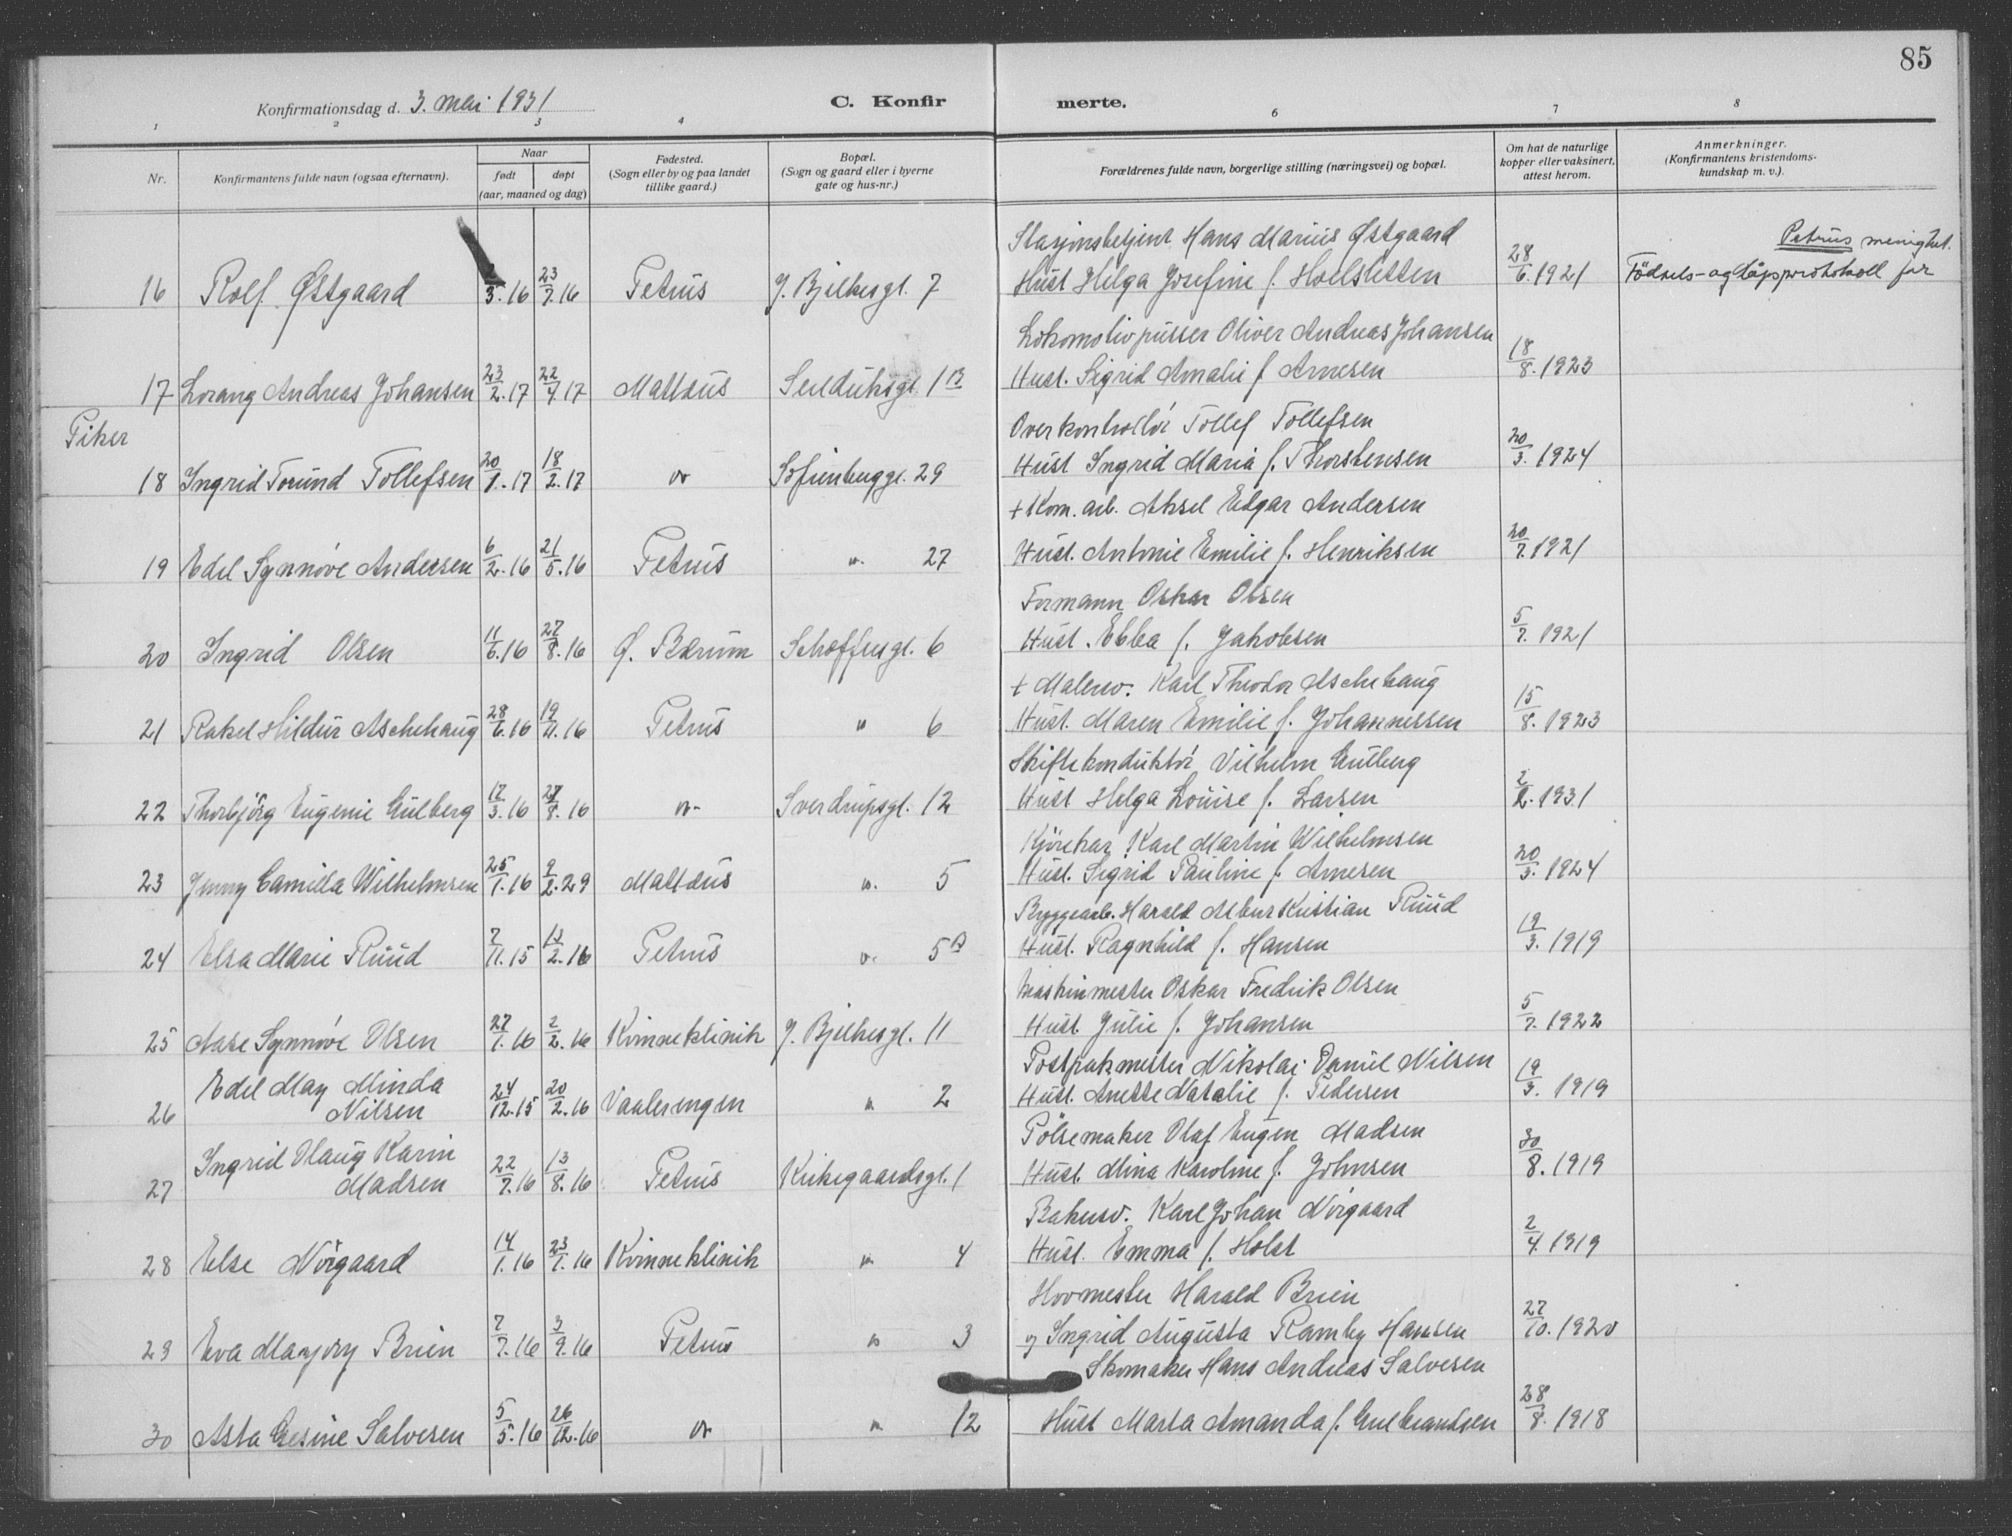 85
Konfirmationsdag d. 3. mai 1931 C. Konfir merte.
1 2 3 4 6 7 8
Nr. Konfirmantens fulde navn (ogsaa efternavn). Naar født døpt (aar, maaned og dag) Fødested. (Sogn eller by og paa landet tillike gaard.) Bopæl. (Sogn og gaard eller i byerne gate og hus-nr.) Forældrenes fulde navn, borgerlige stilling (næringsvei) og bopæl. Om hat de naturlige kopper eller vaksinert, attest herom. Anmerkninger. (Konfirmantens kristendoms- kundskap m. v.).
Stasjonsbetjent Hans Marius Østgaard Petrus menighet.
16 Rolf Østgaard 3.16 23/7.16 Petrus J. Bjelkesgt. 7 Hust Helga Josefine f. Hoelsletten 28/6.1921 Födsels- og dåpsprotokoll for
Lokomotivpusser Oliver Andreas Johansen
17 Lorang Andreas Johansen 23/2.17 22/4.17 Mattæus Seilduksgt. 1 B Hust. Sigrid Amalie f Arnesen 18/8.1923
Piker
Overkontrollör Tollef Tollefsen
18 Ingrid Torund Tollefsen 20/1.17 18/2.17 " Sofienberggt. 29 Hust Ingrid Maria f. Thorstensen 20/3.1924
+ Kom. arb. Aksel Edgar Andersen
19 Edel Synnöve Andersen 6/2.16 21/5.16 Petrus " 27 Hust. Antonie Emilie f. Henriksen 20/7.1921
Formann Oskar Olsen
20 Ingrid Olsen 11/6.16 27/8.16 Ø. Bærum Schæffersgt. 6 Hust. Ebba f. Jakobsen 5/7.1921
+ Malersv. Karl Theodor Aschehaug
21 Rakel Hildur Aschehaug 28/6.16 19/11.16 Petrus " 6 Hust. Maren Emilie f. Johannessen 15/8.1923
Skiftekonduktör Vilhelm Gulberg
22 Thorbjörg Eugenie Gulberg 12/3.16 27/8.16 " Sverdrupsgt. 12 Hust Helga Louise f. Larsen 2/2.1931
Kjörekar Karl Martin Wilhelmsen
23 Jenny Camilla Wilhelmsen 25/1.16 9/2.29 Mattæus " 5 Hust. Sigrid Pauline f. Arnesen 20/3.1924
Byggearb. Harald Albert Kristian Ruud
24 Elsa Marie Ruud 7/11.15 13/2.16 Petrus " 5 B Hust. Ragnhild f. Hansen 19/3.1919
Maskinmester Oskar Fredrik Olsen
25 Aase Synnöve Olsen 27/1.16 2/2.16 Kvinneklinik J. Bjelkesgt. 11 Hust. Julie f. Johansen 5/7.1922
Postpakmester Nikolai Daniel Nilsen
26 Edel May Minda Nilsen 24/12.15 20/2.16 Vaalerengen " 2 Hust. Anette Natalie f. Pedersen 19/3.1919
Pölsemaker Olaf Eugen Madsen
27 Ingrid Olaug Karin Madsen 22/7.16 13/8.16 Petrus Kirkegaardsgt. 1 Hust. Mina Karoline f. Johnsen 30/8.1919
Bakersv. Karl Johan Nörgaard
28 Else Nörgaard 14/1.16 23/1.16 Kvinneklinik " 4 Hust. Emma f. Holst 2/4.1919
Hovmester Harald Brien
29 Eva Marjory Brien 7/7.16 3/9.16 Petrus " 3 og Ingrid Augusta Ramby Hansen 27/10.1920
Skomaker Hans Andreas Salvesen
30 Asta Gesine Salvesen 5/5.16 26/12.16 " " 12 Hust Marta Amanda f. Gulbrandsen 28/8.1918